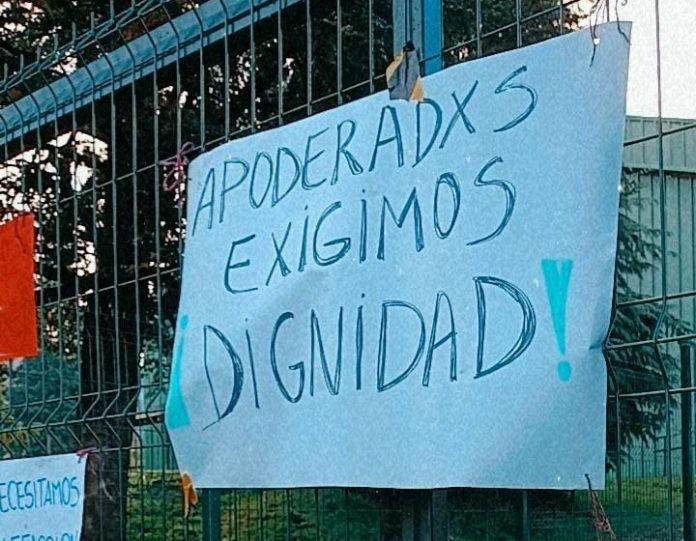 APODERADXS
EXIGIMOS
¡DIGNIDAD!
ECESITAMOS